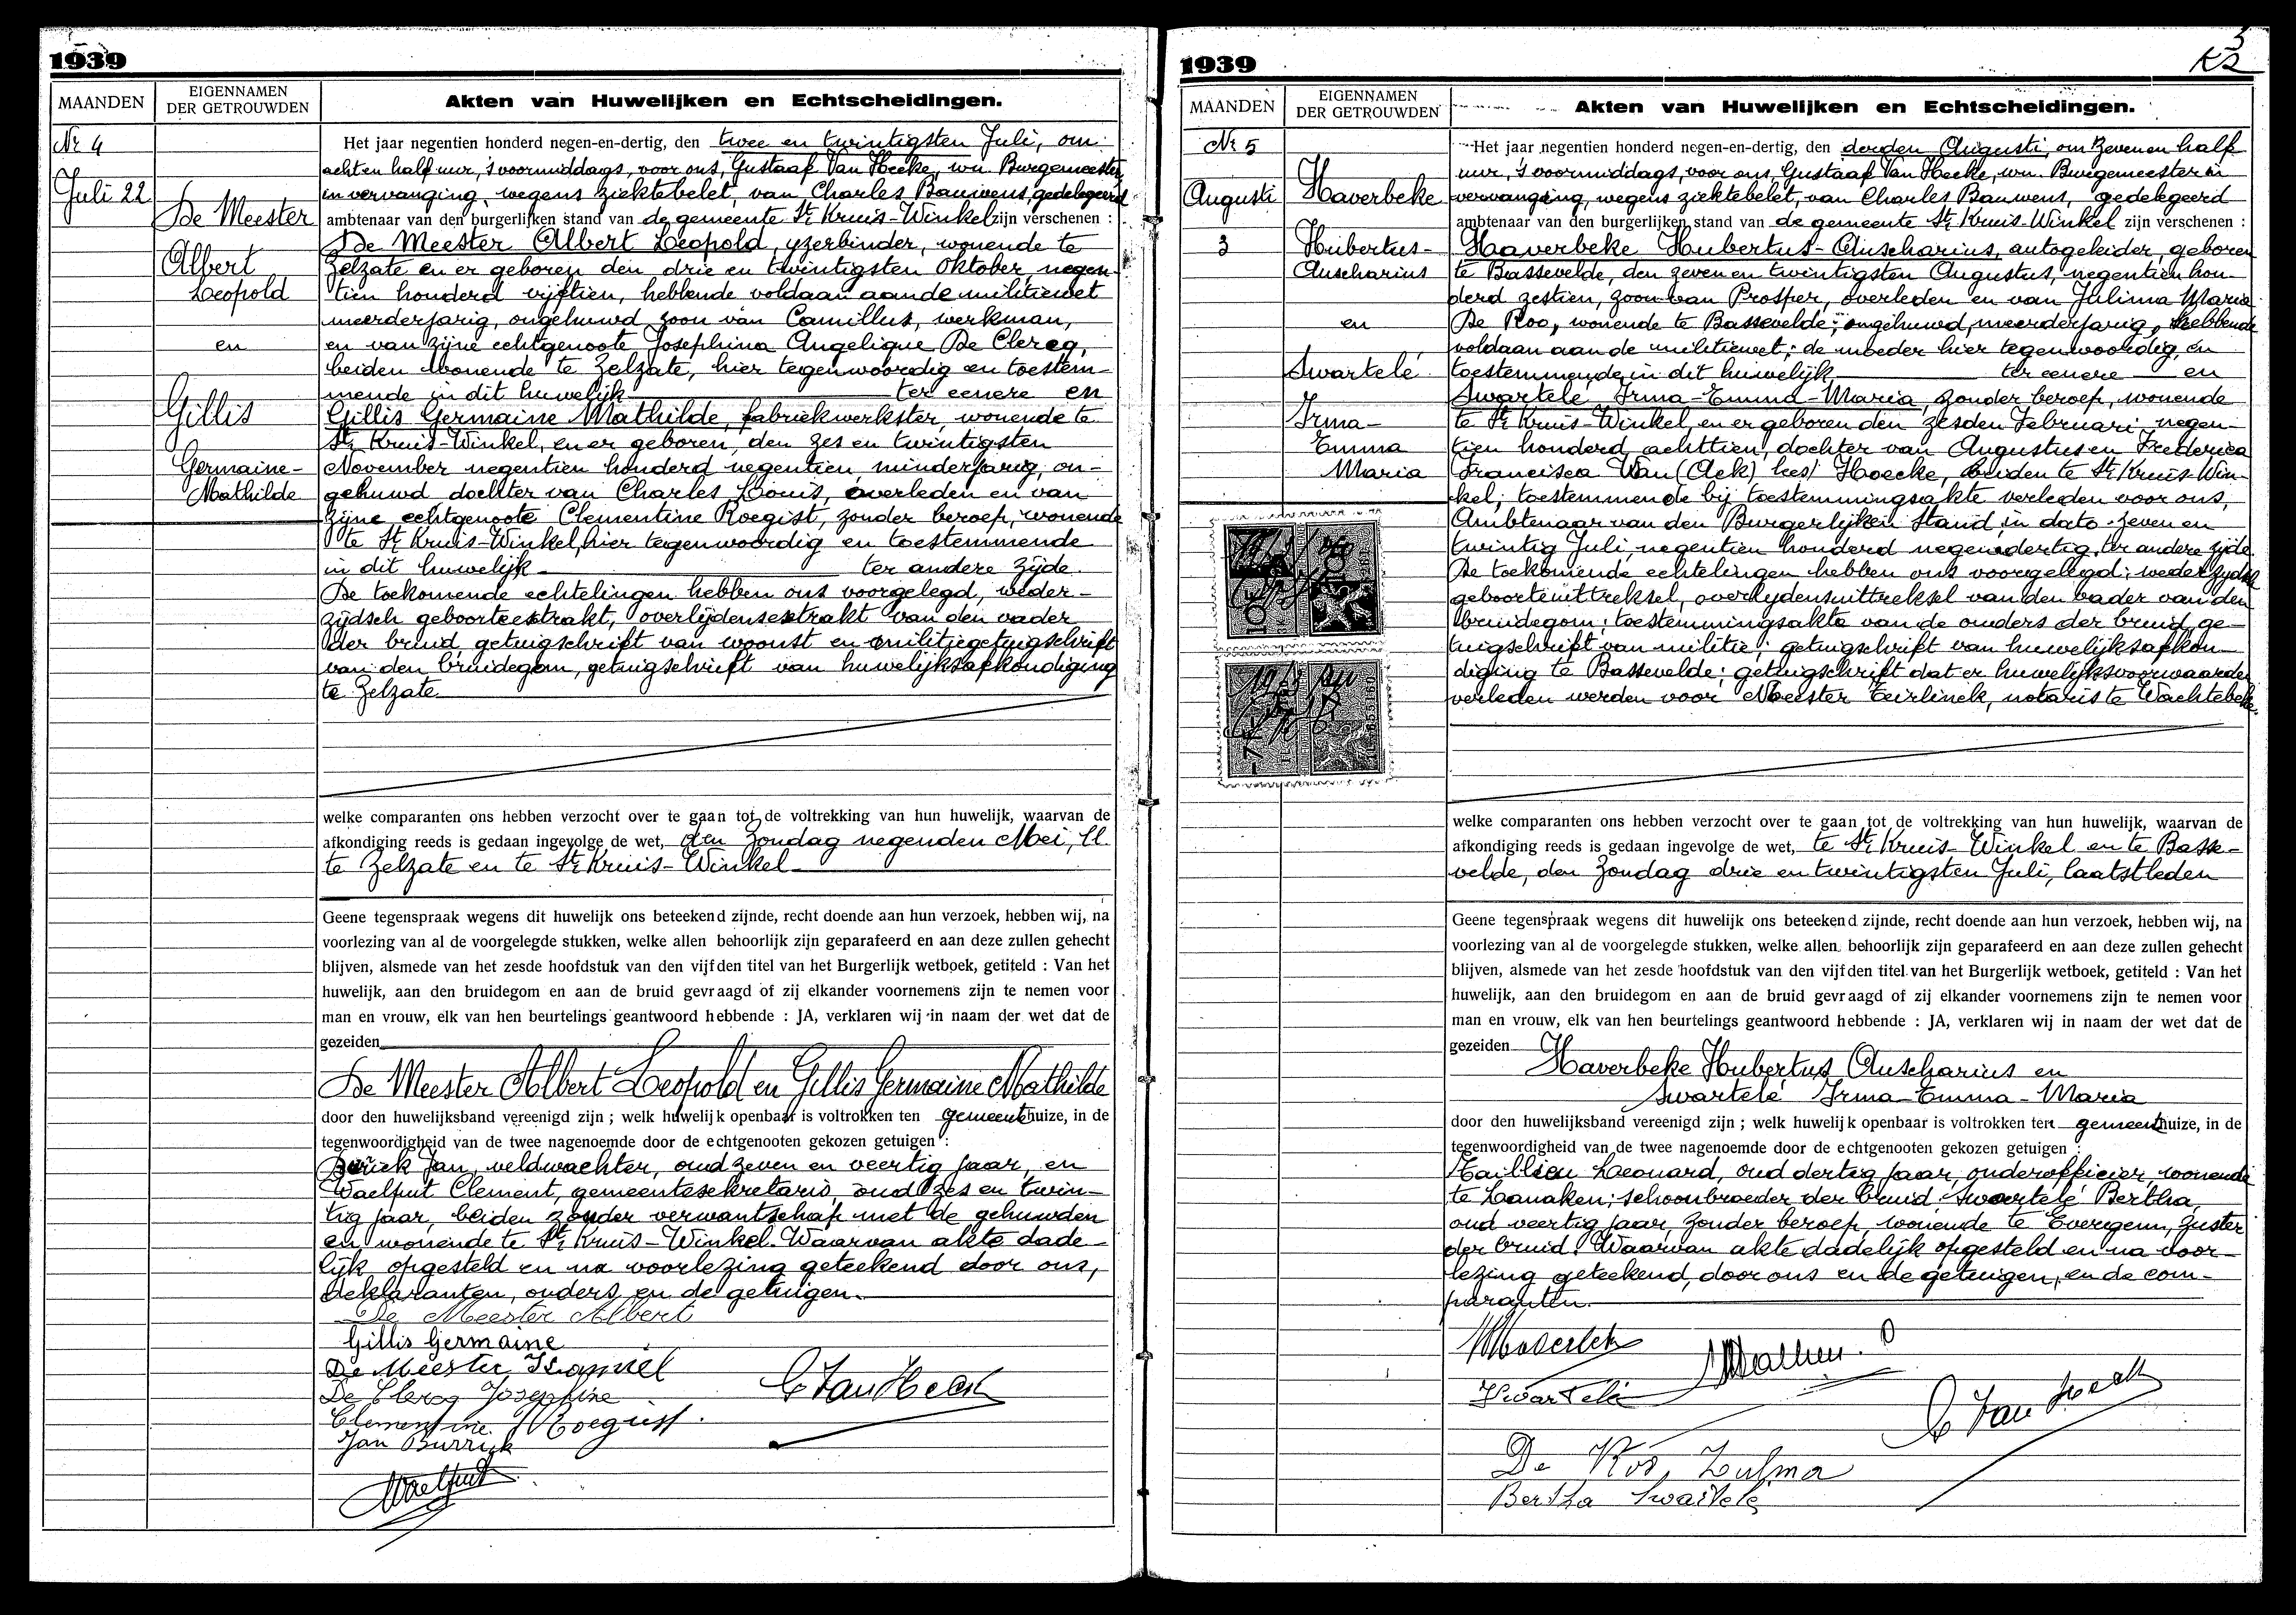 1939
MAANDEN
EIGENNAMEN
DER GETROUWDEN
Akten van Huwelijken en Echtscheidingen.
Nr 4
Juli 22
De Meester
Albert
Leopold
en
Gillis
Germaine-
Mathilde
Het jaar negentien honderd negen-en-dertig, den twee en twintigsten Juli, om
acht en half uur, 's voormiddags, voor ons, Gustaaf Van Hecke, wn. Burgemeester
in vervanging, wegens ziektebelet, van Charles Bauwens, gedelegeerd
ambtenaar van den burgerlijken stand van de gemeente St Kruis-Winkel zijn verschenen :
De Meester Albert Leopold, yzerbinder, wonende te
Zelzate en er geboren den drie en twintigsten Oktober negen-
tien honderd vijftien, hebbende voldaan aan de militiewet
meerderjarig, ongehuwd zoon van Camillus, werkman,
en van zijne echtgenoote Josephina Angelique De Clercq,
beiden wonende te Zelzate, hier tegenwoordig en toestem-
mende in dit huwelijk ter eenere en
Gillis Germaine Mathilde, fabriekwerkster, wonende te
St Kruis-Winkel, en er geboren, den zes en twintigsten
November negentien honderd negentien minderjarig, on-
gehuwd dochter van Charles Louis, overleden en van
zijne echtgenoote Clementine Roegist, zonder beroep, wonende
te St Kruis-Winkel, hier tegenwoordig en toestemmende
in dit huwelijk ter andere zijde.
De toekomende echtelingen hebben ons voorgelegd, weder-
zijdsch geboorteextrakt, overlijdensextrakt van den vader
der bruid, getuigschrift van woonst en militiegetuigschrift
van den bruidegom, getuigschrift van huwelijksafkondiging
te Zelzate
welke comparanten ons hebben verzocht over te gaan tot de voltrekking van hun huwelijk, waarvan de
afkondiging reeds is gedaan ingevolge de wet, den Zondag negenden Mei, ll.
te Zelzate en te St Kruis-Winkel
Geene tegenspraak wegens dit huwelijk ons beteekend zijnde, recht doende aan hun verzoek, hebben wij, na
voorlezing van al de voorgelegde stukken, welke allen behoorlijk zijn geparafeerd en aan deze zullen gehecht
blijven, alsmede van het zesde hoofdstuk van den vijfden titel van het Burgerlijk wetboek, getiteld : Van het
huwelijk, aan den bruidegom en aan de bruid gevraagd of zij elkander voornemens zijn te nemen voor
man en vrouw, elk van hen beurtelings geantwoord hebbende : JA, verklaren wij in naam der wet dat de
gezeiden
De Meester Albert Leopold en Gillis Germaine Mathilde
door den huwelijksband vereenigd zijn ; welk huwelijk openbaar is voltrokken ten gemeentehuize, in de
tegenwoordigheid van de twee nagenoemde door de echtgenooten gekozen getuigen :
Jan, veldwachter, oud zeven en veertig jaar, en
Waelput Clement, gemeentesekretaris, oud zes en twin-
tig jaar, beiden zonder verwantschap met de gehuwden
en wonende te St Kruis-Winkel. Waarvan akte dade-
lijk opgesteld en na voorlezing geteekend door ons,
deklaranten, ouders en de getuigen.
De Meester Albert
Gillis Germaine
De Meester Kamiel
De Clercq Josephine
Clementine Roegist.
G Van Hecke
Jan Burrick
Waelput
1939
5
K2
MAANDEN
EIGENNAMEN
DER GETROUWDEN
Akten van Huwelijken en Echtscheidingen.
Nr 5
Augusti
3
Haverbeke
Hubertus-
Auscharius
en
Swartelé
Irma-
Emma
Maria
Het jaar negentien honderd negen-en-dertig, den derden Augusti, om zeven en half
uur, 's voormiddags, voor ons, Gustaaf Van Hecke, wn. Burgemeester in
vervanging, wegens ziektebelet, van Charles Bauwens, gedelegeerd
ambtenaar van den burgerlijken stand van de gemeente St Kruis-Winkel zijn verschenen :
Haverbeke Hubertus-Auscharius, autogeleider, geboren
te Bassevelde, den zeven en twintigsten Augustus, negentien hon-
derd zestien, zoon van Prosper, overleden en van Julima Maria
De Roo, wonende te Bassevelde; ongehuwd, meerderjarig, hebbende
voldaan aan de militiewet; de moeder hier tegenwoordig, en
toestemmende in dit huwelijk ter eenere en
Swartelé Irma-Emma-Maria, zonder beroep, wonende
te St Kruis-Winkel, en er geboren den zesden Februari negen-
tien honderd achttien, dochter van Augustus en Frederica
Francisca Van (Ack) lees: Hoecke, beiden te St Kruis-Win-
kel; toestemmende bij toestemmingsakte verleden voor ons,
Ambtenaar van den Burgerlijken Stand, in dato zeven en
twintig Juli negentien honderd negenendertig, ter andere zijde.
De toekomende echtelingen hebben ons voorgelegd: wederzijdsch
geboorteuittreksel, overlydensuittreksel van den vader van den
bruidegom; toestemmingsakte van de ouders der bruid, ge-
tuigschrift van militie; getuigschrift van huwelijksafkon-
diging te Bassevelde; getuigschrift dat er huwelijksvoorwaarden
verleden werden voor Meester Teirlinck, notaris te Wachtebeke.
welke comparanten ons hebben verzocht over te gaan tot de voltrekking van hun huwelijk, waarvan de
afkondiging reeds is gedaan ingevolge de wet, te St Kruis-Winkel en te Basse-
velde, den Zondag drie en twintigsten Juli, laatstleden
Geene tegenspraak wegens dit huwelijk ons beteekend zijnde, recht doende aan hun verzoek, hebben wij, na
voorlezing van al de voorgelegde stukken, welke allen behoorlijk zijn geparafeerd en aan deze zullen gehecht
blijven, alsmede van het zesde hoofdstuk van den vijfden titel van het Burgerlijk wetboek, getiteld : Van het
huwelijk, aan den bruidegom en aan de bruid gevraagd of zij elkander voornemens zijn te nemen voor
man en vrouw, elk van hen beurtelings geantwoord hebbende : JA, verklaren wij in naam der wet dat de
gezeiden
Haverbeke Hubertus Auscharius en
Swartelé Irma-Emma-Maria
door den huwelijksband vereenigd zijn ; welk huwelijk openbaar is voltrokken ten gemeentehuize, in de
tegenwoordigheid van de twee nagenoemde door de echtgenooten gekozen getuigen :
Leonard, oud dertig jaar, onderofficier wonende
te Lanaken; schoonbroeder der bruid, Swartelé Bertha,
oud veertig jaar, zonder beroep, wonende te Evergem, zuster
der bruid. Waarvan akte dadelijk opgesteld en na voor-
lezing geteekend, door ons en de getuigen, en de com-
paranten.
Swartelé
G Van Hecke
De Roo, Zulma
Bertha Swartelé